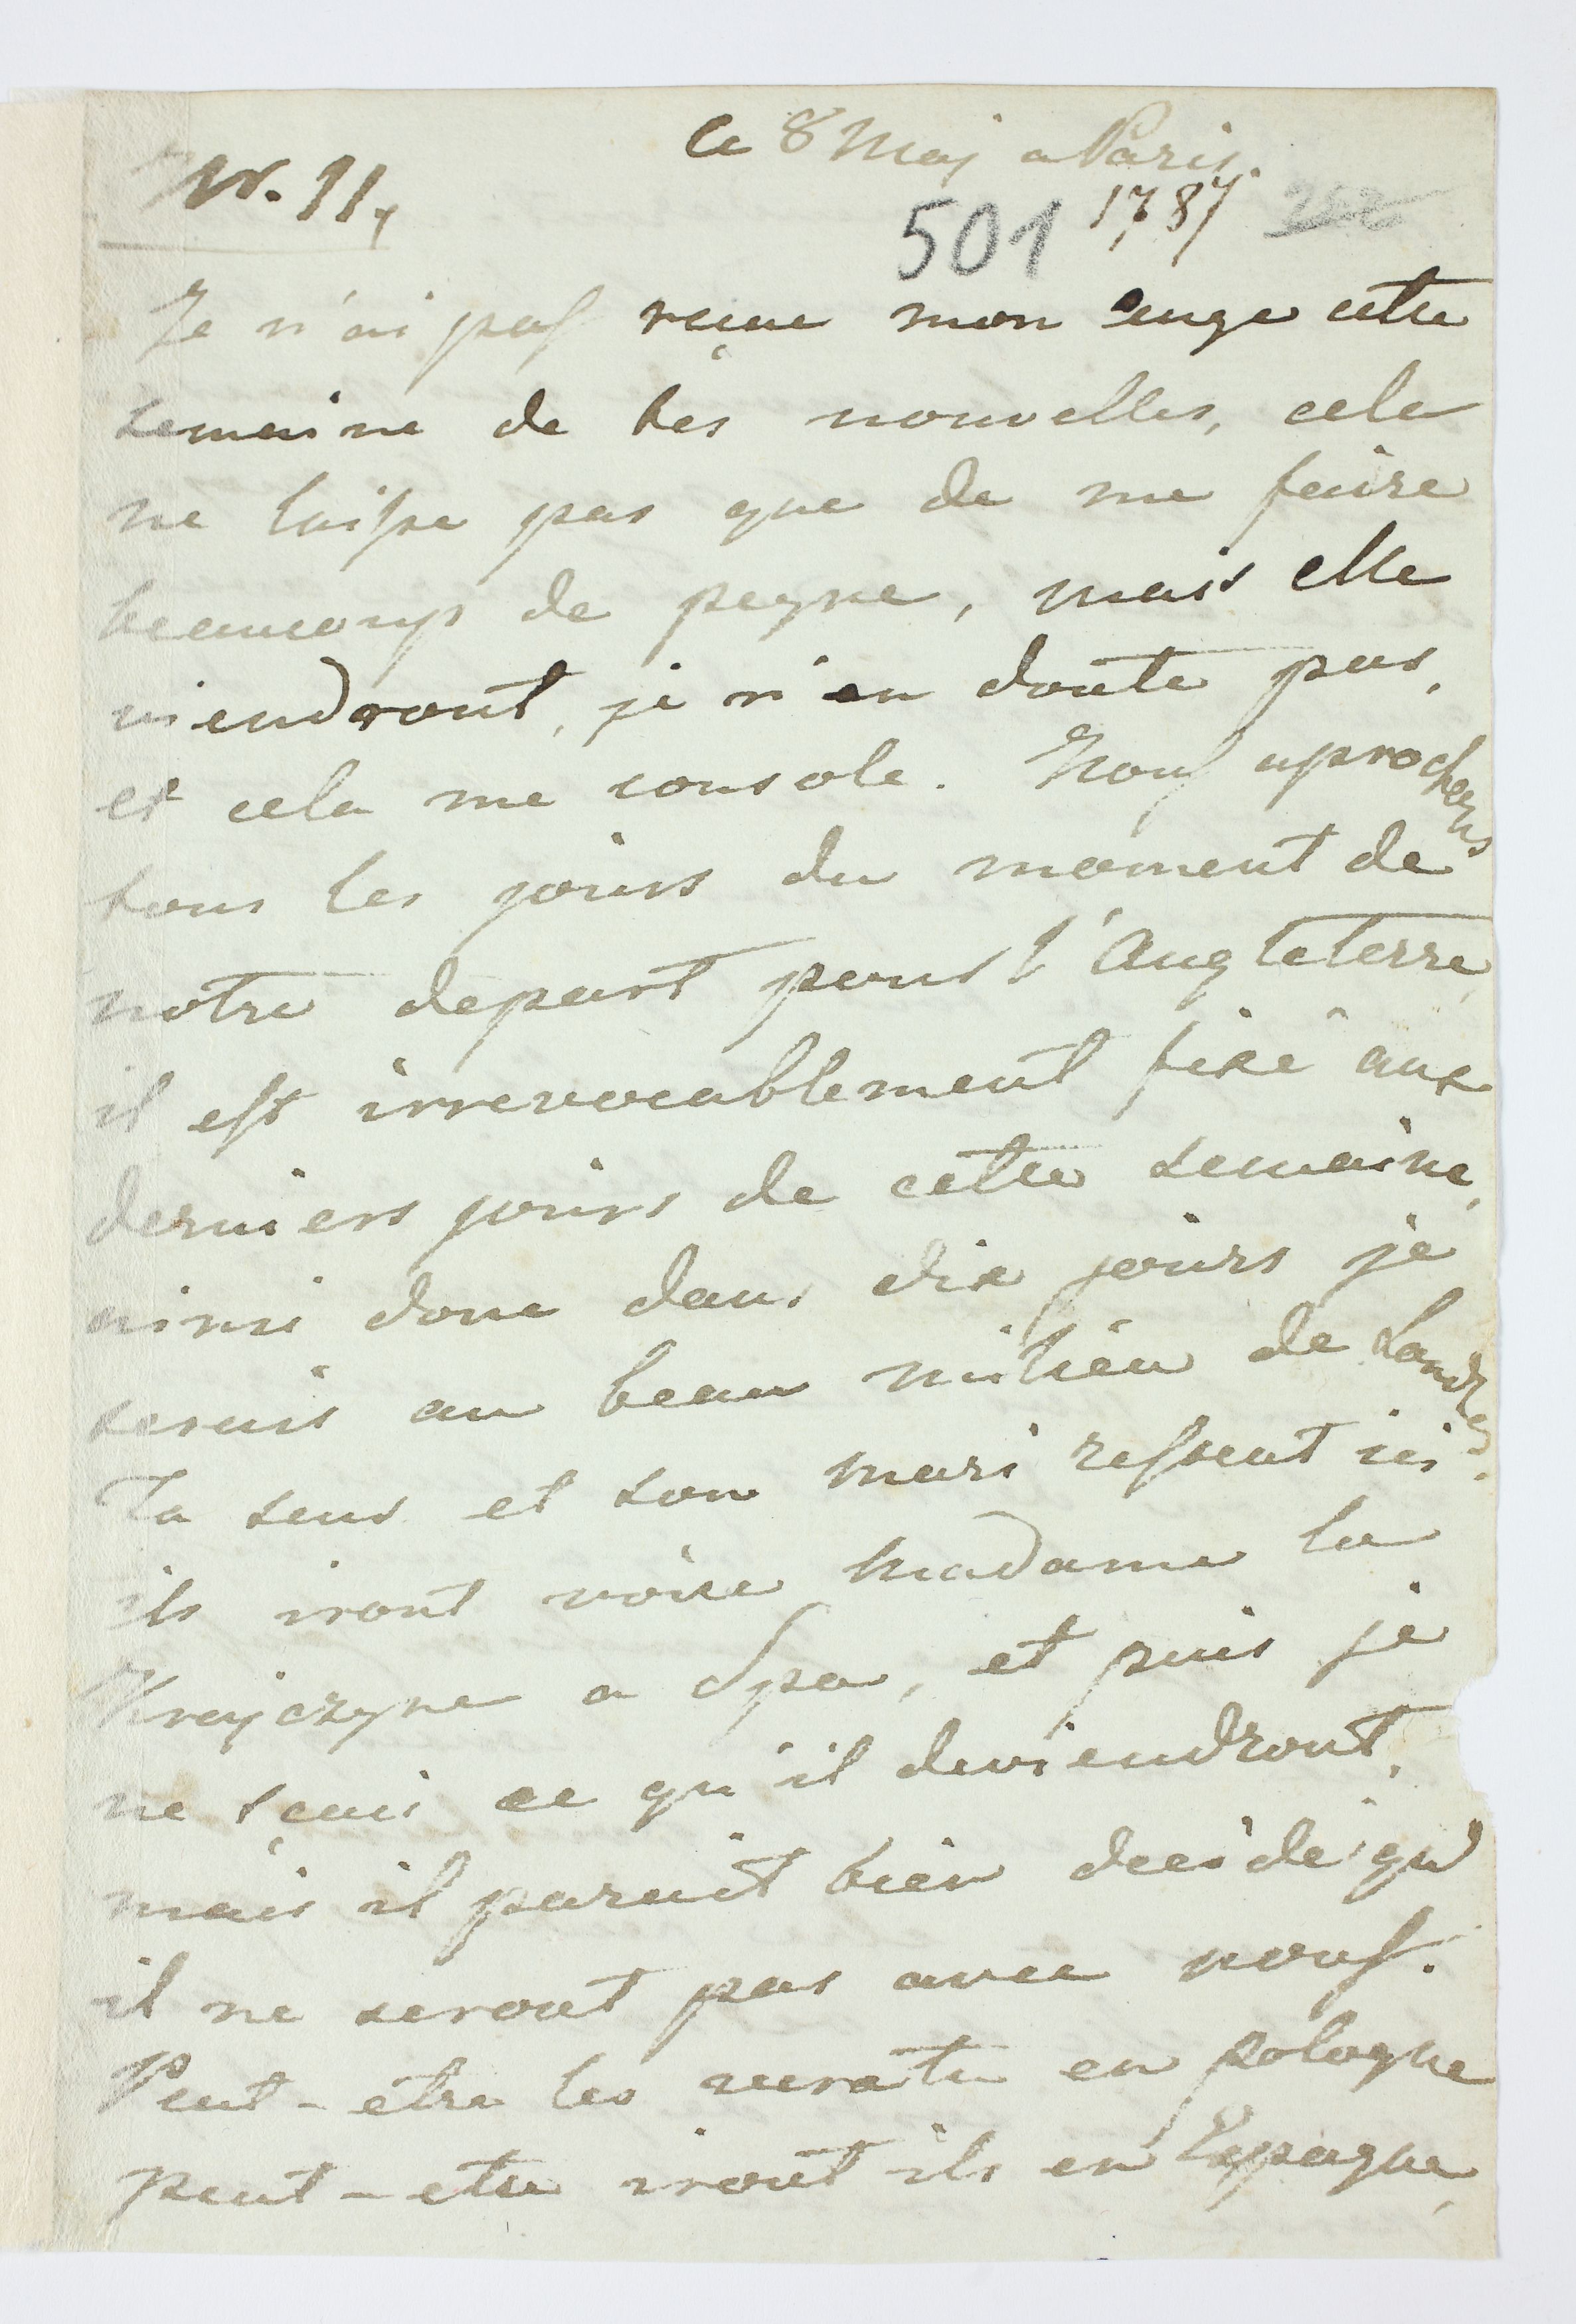 Ce 8 Maj a Paris.
Nr. 11.
501 1787 252
Je n'ai pas reçue mon enge cette
semaine de tes nouvelles, cela
ne laisse pas que de me faire
beaucoup de peyne, mais elle
viendront, je n'en doute pas,
et cela me console. Nous aprochons
tous les jours du moment de
notre depart pour l'Angleterre,
il est irrevocablement fixé aux
derniers jours de cette semaine,
ainsi donc dans dix jours je
serais au beau milieu de Londres.
Ta seur et son mari restent ici.
ils iront voire Madame la
Krajczyne a Spa, et puis je
ne sçais ce qu'il deviendront,
mais il parait bien decidé qu'
il ne seront pas avec nous.
Peut-etre les veratu en pologne
peut-etre iront ils en Espagne,